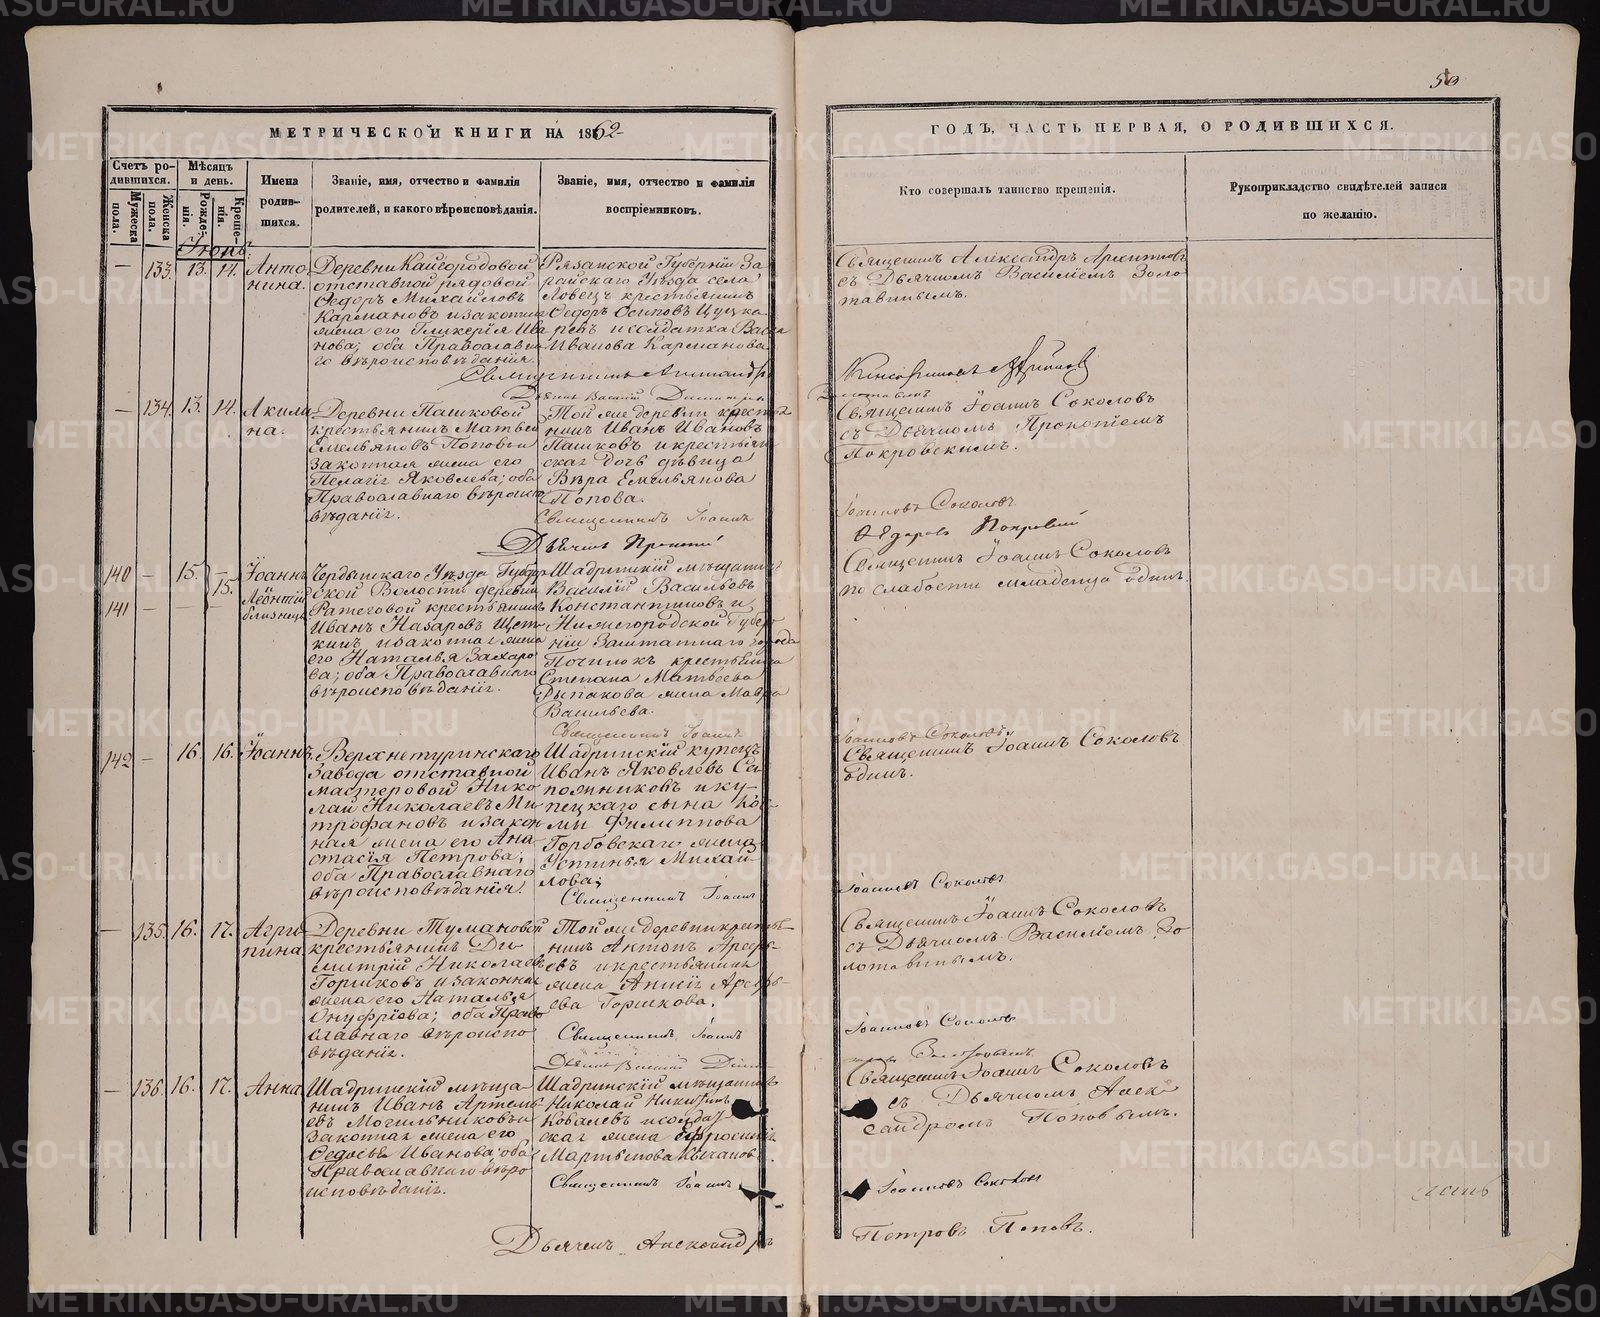 50
МЕТРИЧЕСКОЙ КНИГИ НА 1862
ГОДЪ, ЧАСТЬ ПЕРВАЯ, О РОДИВШИХСЯ.
Счетъ ро-
дившихся.
Мужеска
пола.
Женска
пола.
Мѣсяцъ
и день.
Рожде-
нія.
Креще-
нія.
Имена
родив-
шихся.
Званіе, имя, отчество и фамилія
родителей, и какого вѣроисповѣданія.
Званіе, имя, отчество и фамилія
воспріемниковъ.
Кто совершалъ таинство крещенія.
Рукоприкладство свидѣтелей записи
по желанію.
133. 13. 14.
Анто-
нина.
Деревни Кайгородовой
отставной рядовой
Ѳедоръ Михайловъ
Кармановъ и законная
жена его Гликерія Ива
нова; оба Православна
го вѣроисповѣданія.
Рязанской Губерніи За
райскаго Уѣзда села
Ловецъ крестьянинъ
Ѳедоръ Осиповъ
и солдатка
Иванова Карманова
Священникъ Александръ
съ Дьячкомъ Василіемъ Золо
тавинымъ.
134. 13. 14.
Акили
на.
Деревни Пашковой
крестьянинъ Матвей
Емельяновъ Поповъ и
законная жена его
Пелагія Яковлева; оба
Православнаго вѣроиспо
вѣданія.
Той же деревни крестья
нинъ Иванъ Ивановъ
Пашковъ и крестьян
ская дочь дѣвица
Вѣра Емельянова
Попова.
Священникъ Іоаннъ
Священникъ Іоаннъ Соколовъ
съ Дьячкомъ Прокопіемъ
Покровскимъ.
Іоанновъ Соколовъ
Дьячекъ Прокопій
Ѳедоровъ Покровскій
140 — 15. 15.
141
Іоаннъ
Леонтій
близнецы
Чердынскаго Уѣзда
ской Волости деревни
Ратеговой крестьянинъ
Иванъ Назаровъ Щет
кинъ и законная жена
его Наталья Захаро
ва; оба Православнаго
вѣроисповѣданія.
Шадринскій мѣщанинъ
Василій Васильевъ
Константиновъ и
Нижегородской Губер
ніи Заштатнаго города
Починокъ крестьянина
Степана Матвеева
жена Мавра
Васильева.
Священникъ Іоаннъ
Священникъ Іоаннъ Соколовъ
по слабости младенца одинъ.
Іоанновъ Соколовъ
142 — 16. 16.
Іоаннъ.
Верхнетуринскаго
Завода отставной
мастеровой Нико
лай Николаевъ Ми
трофановъ и закон
ная жена его Ана
стасія Петрова;
оба Православнаго
вѣроисповѣданія.
Шадринскій купецъ
Иванъ Яковлевъ Са
пожниковъ и ку
пецкаго сына Коз
мы Филиппова
Горбовскаго жена
Устинья Михай
лова;
Священникъ Іоаннъ
Священникъ Іоаннъ Соколовъ
одинъ.
Іоанновъ Соколовъ
— 135. 16. 17.
Агри
пина.
Деревни Тумановой
крестьянинъ Ди
митрій Николаевъ
Горшковъ и законная
жена его Наталья
Онуфріева; оба Право
славнаго вѣроиспо
вѣданія.
Той же деревни крестья
нинъ Антонъ Арефь
евъ и крестьянская
жена Аннія Арефь
ева Горшкова.
Священникъ Іоаннъ
Священникъ Іоаннъ Соколовъ
съ Дьячкомъ Василіемъ Зо
лотавинымъ.
Іоанновъ Соколовъ
— 136. 16. 17.
Анна
Шадринскій мѣща
нинъ Иванъ Артемь
евъ Могильниковъ и
законная жена его
Ѳедосья Иванова; оба
Православнаго вѣро
исповѣданія.
Шадринскій мѣщанинъ
Николай Никитинъ
Ковалевъ и солдат
ская жена Ефросинія
Мартынова
Священникъ Іоаннъ
Священникъ Іоаннъ Соколовъ
съ Дьячкомъ Алек
сандромъ Поповымъ.
Іоанновъ Соколовъ
Дьячекъ Александръ
Петровъ Поповъ.
METRIKI.GASO-URAL.RU